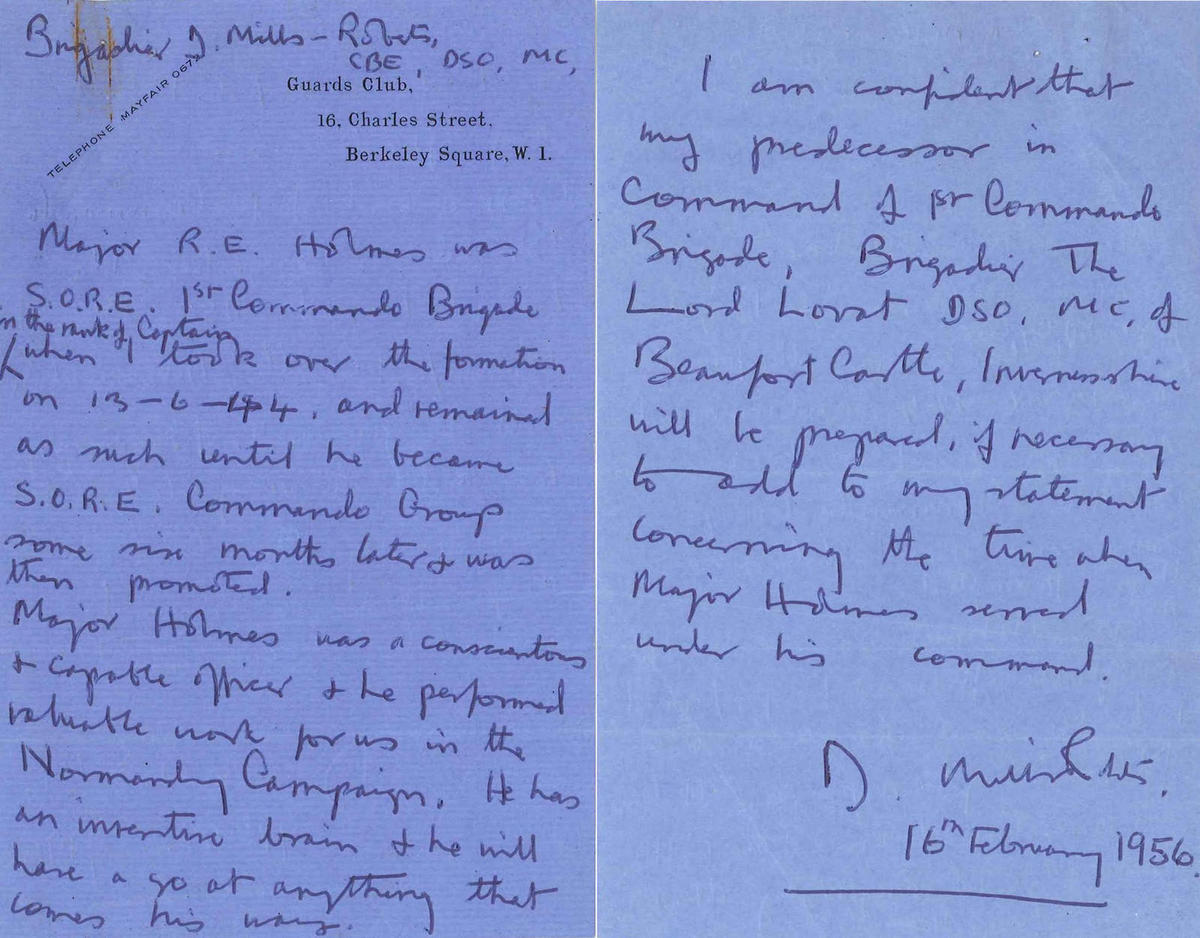 Brigadier D. Mills-Roberts,
CBE, DSO, MC,
TELEPHONE MAYFAIR 067
Guards Club,
16, Charles Street,
Berkeley Square, W. 1.
Major R.E. Holmes was
S.O.R.E. 1st Commando Brigade
in the rank of Captain
when I took over the formation
on 13-6-44, and remained
as such until he became
S.O.R.E. Commando Group
some six months later & was
then promoted.
Major Holmes was a conscientous
& capable officer & he performed
valuable work for us in the
Normandy Campaign. He has
an inventive brain & he will
have a go at anything that
comes his way.
I am confident that
my predecessor in
Command of 1st Commando
Brigade, Brigadier The
Lord Lovat DSO, MC, of
Beaufort Castle, Invernesshire
will be prepared, if necessary
to add to my statement
concerning the time when
Major Holmes served
under his command.
D. Mills-Roberts.
16th February 1956.